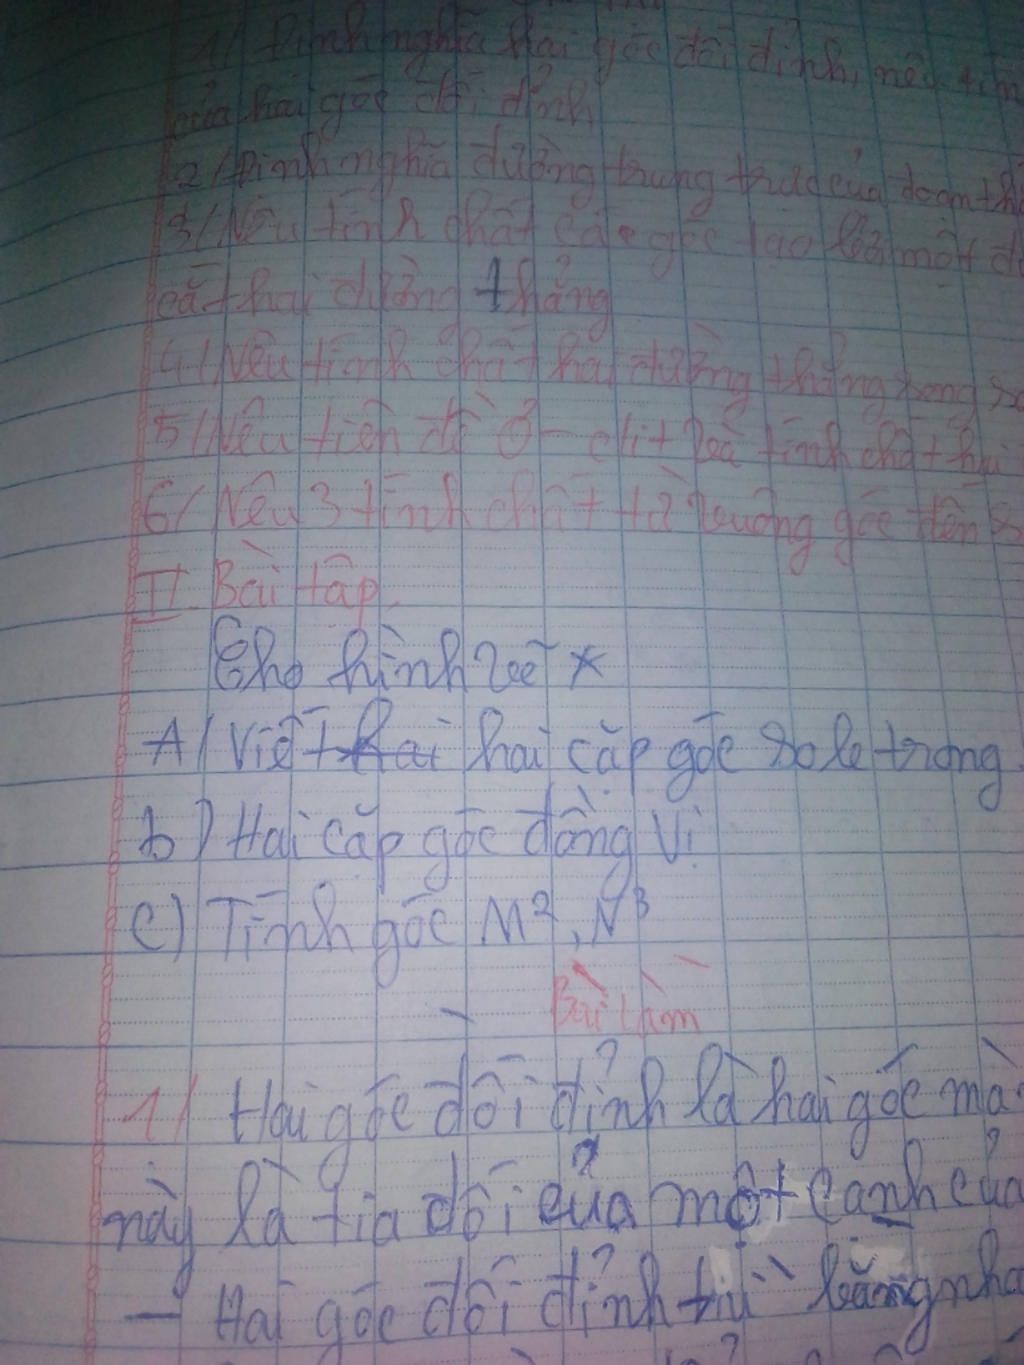 1/ Định nghĩa hai góc đối đỉnh, nêu tín
của hai góc đối đỉnh
2/ Định nghĩa đường trung trực của đoạn th
3/ Nêu tính chất các góc tạo bởi một đ
cắt hai đường thẳng
4/ Nêu tính chất hai đường thẳng song so
5/ Nêu tiên đề Ơ-clit và tính chất hai
6/ Nêu 3 tính chất từ vuông góc đến s
II. Bài tập.
Cho hình vẽ *
A/ Viết hai cặp góc sole trong
b) Hai cặp góc đồng vị
c) Tính góc M², N³
Bài làm
1/ Hai góc đối đỉnh là hai góc mà
này là tia đối của một cạnh của
- Hai góc đối đỉnh thì bằng nha